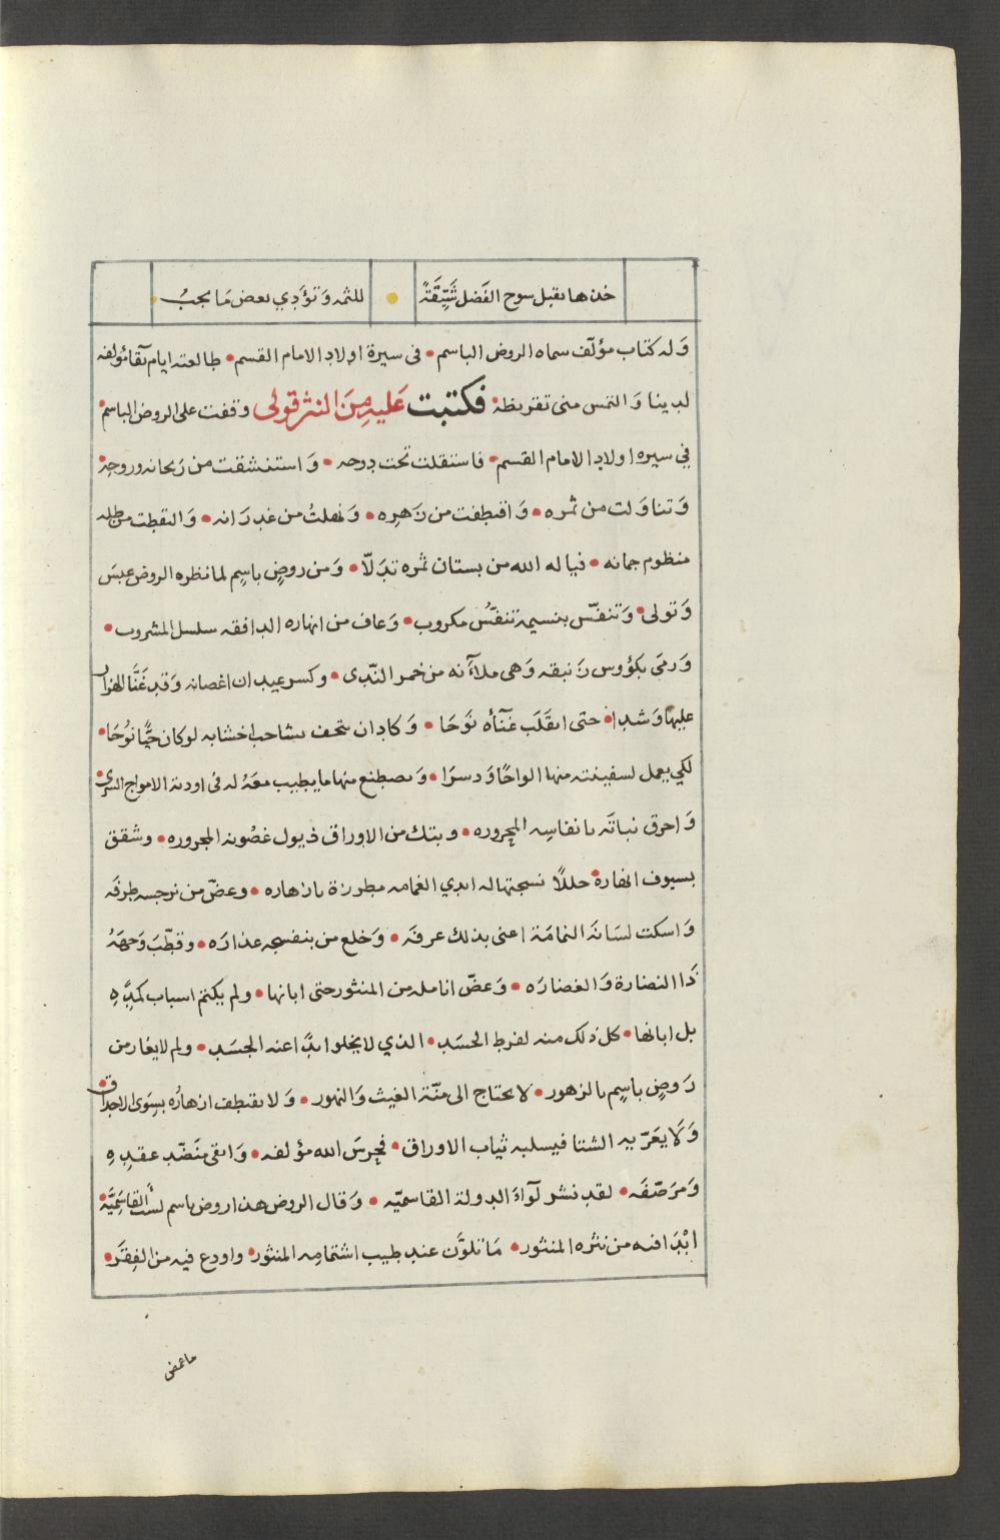 خذها تقبل سوح الفضل شَيِّقَةً • للثمه وَتؤَدِي بعض مَا يجبُ
وَله كتاب مؤلّف سماه الروض الباسم • في سيرة اولاد الامام القسم • طالعته ايام بقا مؤلفه
لدينا وَالتمس منى تقريظه • فكتبت عَليهِ مِنَ النثر قولى وقفت على الروض الباسم •
في سيره اولاد الامام القسم • فاستقلت تحت دوحه • وَاستنشقت من رَيحانه وروحِه •
وَتناوَلت من ثمره • وَاقتطفت من زَهرِه • وَنهلتُ من غدرَانه • وَالتقطت من طله
منظوم جمانه • فيا له الله من بستان ثمره تدَلّا • وَمن روضٍ باسِم لما نظره الروض عبسَ
وَتولى • وَتنفّس بنسيمه تنفّسُ مكروب • وَعاف من انهاره الدافقه سلسل المشروب •
وَرمَى بكؤوس زَنبقه وَهى ملآنه من خمر النّدى • وكسر عيدان اغصانه وَقد غَنَّا الهزار
عليها وَشدا • حتى انقَلَب غنآؤه نَوحَا • وَكاد ان يتحف بشاحب اخشابه لو كان حيًّا نوُحَا •
لكي يعمل لسفينته منها الواحًا وَدسرًا • وَيصطنع منها ما يطيب معَهُ له فى اودية الامواج السرى •
وَاحرق نباتَه بانفاسِه المحروره • وبتك من الاوراق ذيول غصُونه المجروره • وشقق
بسيوف انهاره • حللاً نسجتها له ايدي الغمامه مطرزة بازهاره • وعضّ من نرجسه طرفَه
وَاسكت لسَانَه النمامَة اعنى بذلك عرفَه • وَخلع من بنفسجه عذارَه • وقطّبَ وَجهَهُ
ذَا النضارة وَالغضارَه • وَعضّ انامله من المنثور حتى ابانها • ولم يكتم اسباب كمَدِهِ
بل ابانها • كل ذلك منه لفرط الحسَد • الذي لا يخلوا ابدًا عنه الجسَد • ولم لا يغار من
رَوضٍ باسِم بالزهور • لا يحتاج الى منّة الغيث وَالنهور • وَلا يقتطف ازهارُه بسِوَى الاحداق •
وَلَا يعَرّيه الشتا فيسلبه ثياب الاوراق • فحرسَ الله مؤلفه • وَابقى منَضّد عقدِهِ
وَمرَصّفَه • لقد نشر لَوآءَ الدولة القاسميّه • وَقال الروض هذا روض باسم لست القاسَمِيَّة •
ابْدَا فيه من نثره المنثور • مَا تلوَّن عند طيب اشتمامِه المنثور • واودع فيه من الفِقَر •
ما غمض